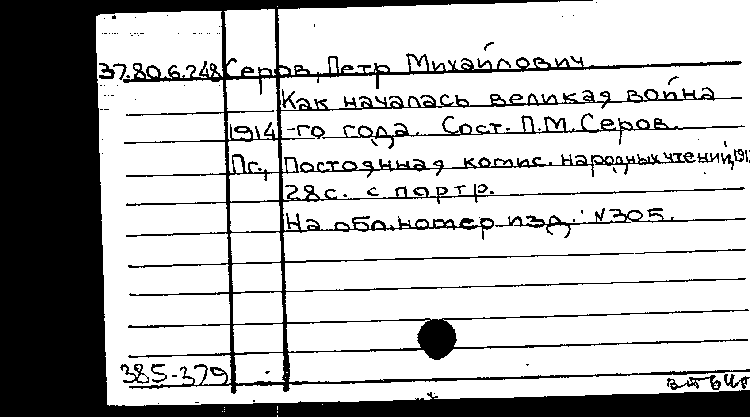 37.80.6.248 Серов, Петр Михайлович.
Как началась великая война
1914-го года. Сост. П.М. Серов.
Пг., Постоянная комис. народных чтений, 191
28с. с портр.
На обл. номер изд.: N 305.
385-379